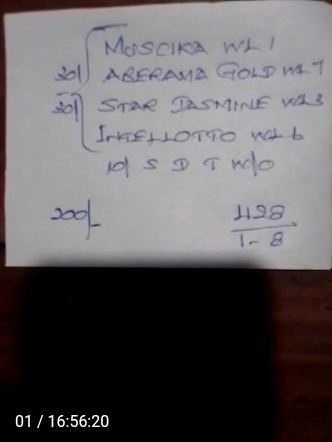 MUSCIKA WL 1
20/ ABERAMA GOLD WL 7
20/ STAR JASMINE WL 3
INTELLOTTO WL 6
10/ S D T W/O
200/- 428
1-8
01 / 16:56:20